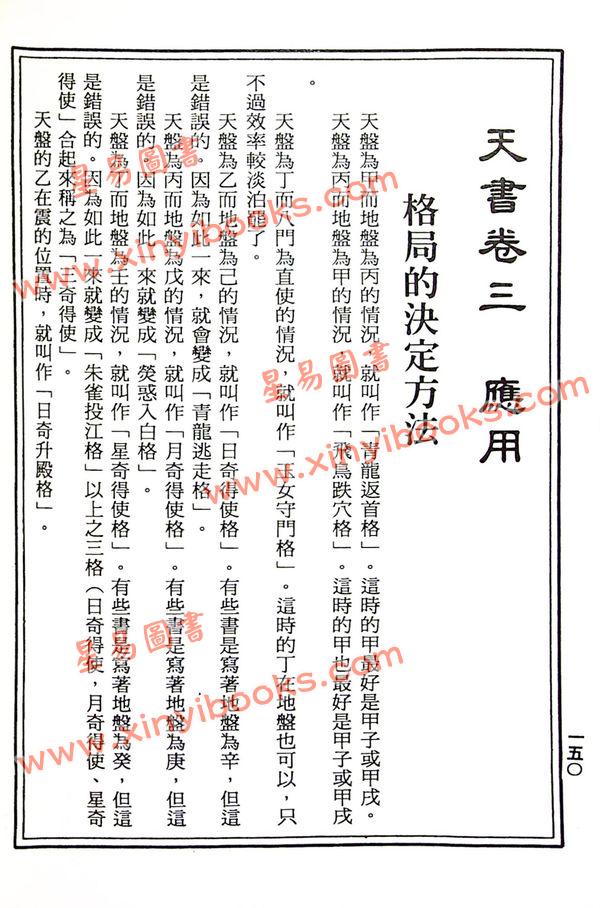 天書卷三　應用
格局的決定方法
天盤為甲而地盤為丙的情況，就叫作「青龍返首格」。這時的甲最好是甲子或甲戌。
天盤為丙而地盤為甲的情況，就叫作「飛鳥跌穴格」。這時的甲也最好是甲子或甲戌
。
天盤為丁而八門為直使的情況，就叫作「玉女守門格」。這時的丁在地盤也可以，只
不過效率較淡泊罷了。
天盤為乙而地盤為己的情況，就叫作「日奇得使格」。有些書是寫著地盤為辛，但這
是錯誤的。因為如此一來，就會變成「青龍逃走格」。
天盤為丙而地盤為戊的情況，就叫作「月奇得使格」。有些書是寫著地盤為庚，但這
是錯誤的。因為如此一來就變成「熒惑入白格」。
天盤為丁而地盤為壬的情況，就叫作「星奇得使格」。有些書是寫著地盤為癸，但這
是錯誤的。因為如此一來就變成「朱雀投江格」以上之三格（日奇得使，月奇得使、星奇
得使」合起來稱之為「三奇得使」。
天盤的乙在震的位置時，就叫作「日奇升殿格」。
一五〇
星易圖書
www.xinyibooks.com
星易圖書
www.xinyibooks.com
星易圖書
www.xinyibooks.com